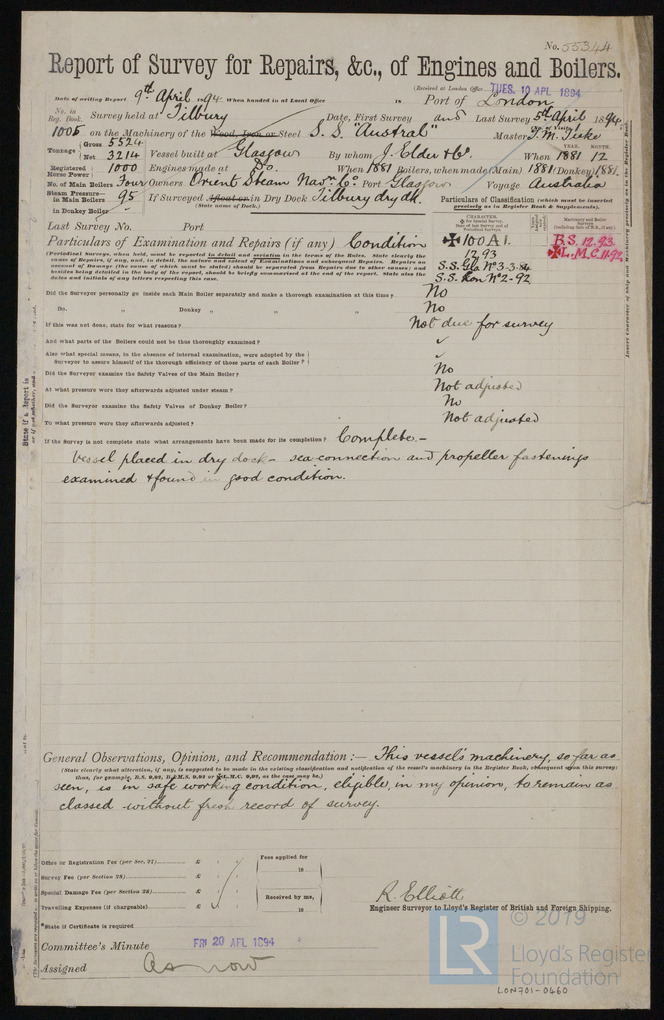 No. 55344
Report of Survey for Repairs, &c., of Engines and Boilers.
(Received at London Office TUES. 10 APL 1894
Date of writing Report 9th April 1894 When handed in at Local Office 18 Port of London
No. in Reg. Book. Survey held at Tilbury Date, First Survey and Last Survey 5th April 1894
1005 on the Machinery of the Wood, Iron or Steel S.S. "Austral" Master
Tonnage Gross 5524
Net 3214 Vessel built at Glasgow By whom J. Elder & Co. When 1881 12
YEAR. MONTH.
Registered Horse Power 1000 Engines made at Do. When 1881 Boilers, when made (Main) 1881 (Donkey) 1881
No. of Main Boilers Four Owners Orient Steam Navn. Co. Port Glasgow Voyage Australia
Steam Pressure in Main Boilers 95 If Surveyed Afloat or in Dry Dock Tilbury dry dk.
(State name of Dock.)
in Donkey Boiler
Particulars of Classification (which must be inserted precisely as in Register Book & Supplements).
Last Survey No. Port
Particulars of Examination and Repairs (if any) Condition
✠ 100 A1.
12.93
S.S. Gla No 3-3-84
S.S. Lon No 2-92
B.S. 12.93
✠ L.M.C. 11.92
(Periodical Surveys, when held, must be reported in detail and seriatim in the terms of the Rules. State clearly the
cause of Repairs, if any, and, in detail, the nature and extent of Examinations and subsequent Repairs. Repairs on
account of Damage (the cause of which must be stated) should be separated from Repairs due to other causes; and
besides being detailed in the body of the report, should be briefly summarised at the end of the report. State also the
dates and initials of any letters respecting this case.
Did the Surveyor personally go inside each Main Boiler separately and make a thorough examination at this time? No
Do. „ Donkey „ „ „ No
If this was not done, state for what reasons? Not due for survey
And what parts of the Boilers could not be thoroughly examined? ✓
Also what special means, in the absence of internal examination, were adopted by the
Surveyor to assure himself of the thorough efficiency of those parts of each Boiler? ✓
Did the Surveyor examine the Safety Valves of the Main Boiler? No
At what pressure were they afterwards adjusted under steam? Not adjusted
Did the Surveyor examine the Safety Valves of Donkey Boiler? No
To what pressure were they afterwards adjusted? Not adjusted
If the Survey is not complete state what arrangements have been made for its completion? Complete.–
Vessel placed in dry dock – sea connection and propeller fastenings
examined & found in good condition.
General Observations, Opinion, and Recommendation :— This vessel's machinery, so far as
(State clearly what alteration, if any, is suggested to be made in the existing classification and notification of the vessel's machinery in the Register Book, consequent upon this survey:
thus, for example, B.S. 9,92, B.&M.S. 9,92 or ✠L.M.C. 9,92, as the case may be.)
seen, is in safe working condition, eligible, in my opinion, to remain as
classed without fresh record of survey.
Office or Registration Fee (per Sec. 27) £
Survey Fee (per Section 28) £
Special Damage Fee (per Section 28) £
Travelling Expenses (if chargeable) £
Fees applied for
18
Received by me,
18
R. Elliott
Engineer Surveyor to Lloyd's Register of British and Foreign Shipping.
*State if Certificate is required
Committee's Minute FRI 20 APL 1894
Assigned As now
© 2019
LR
Lloyd's Register
Foundation
LON701-0460